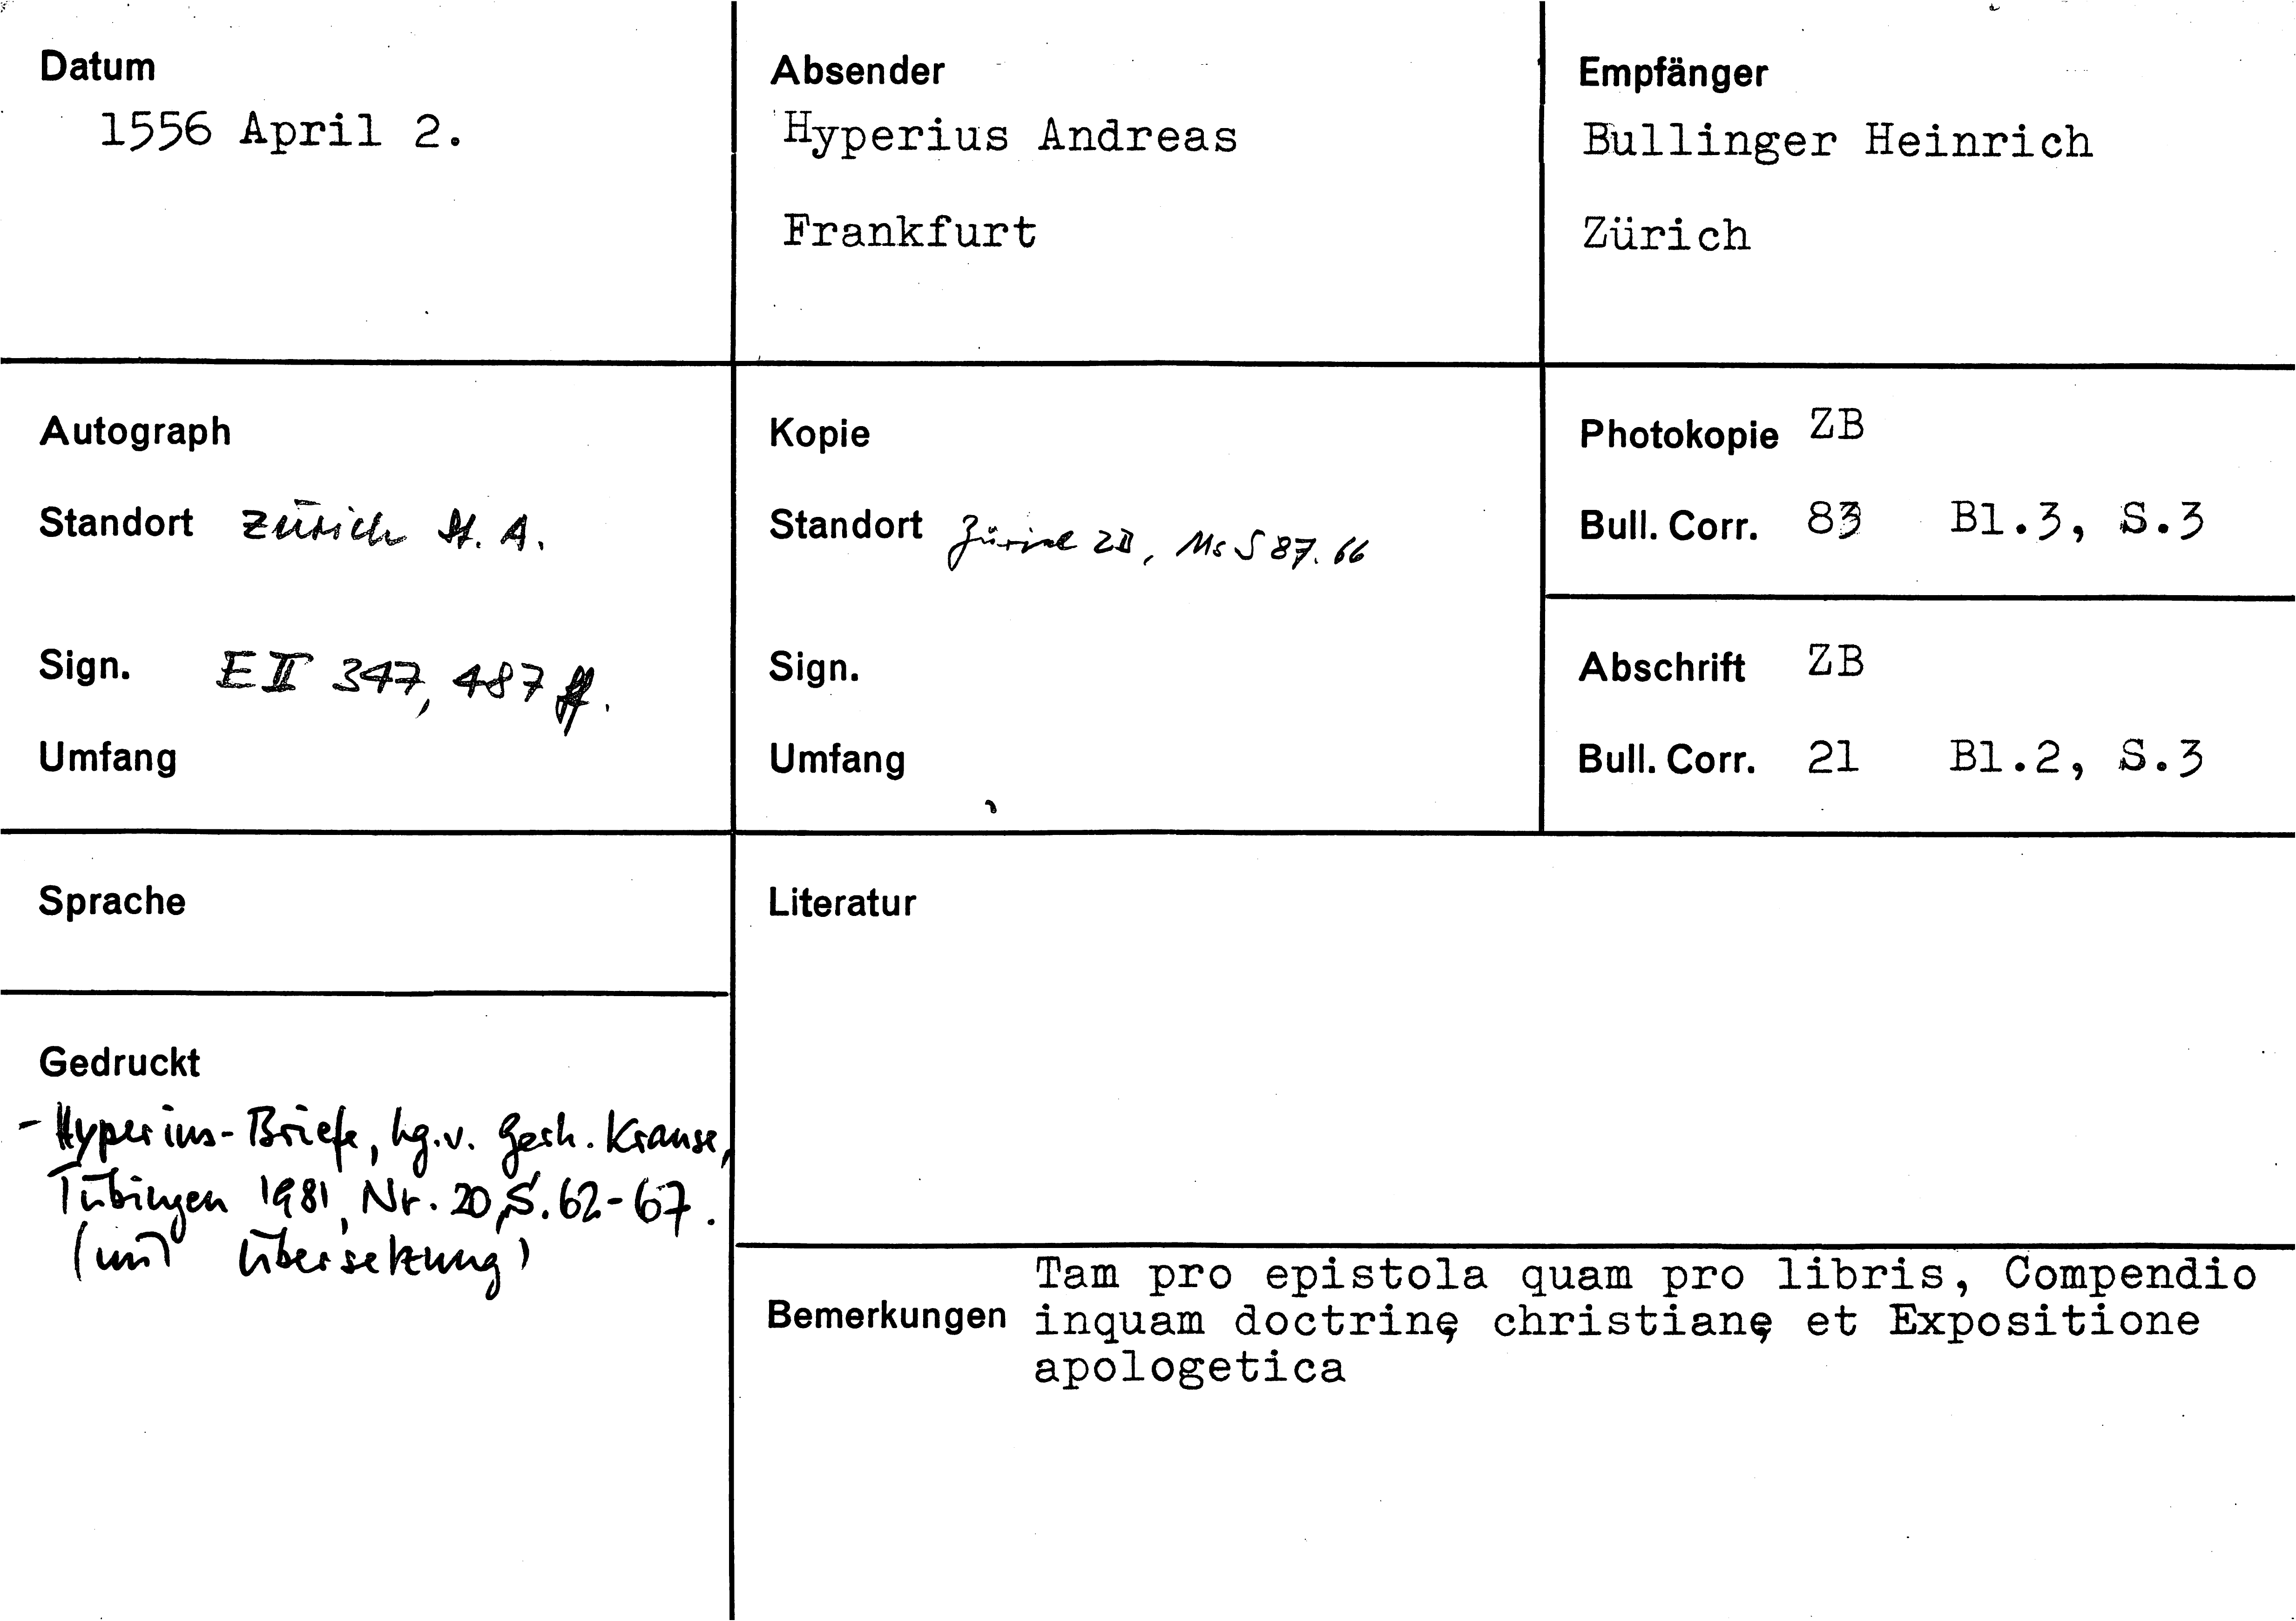 Datum
1556 April 2.
Absender
Hyperius Andreas
Frankfurt
Empfänger
Bullinger Heinrich
Zürich
Autograph
Standort Zürich St. A.
Sign. E II 347, 487 ff.
Umfang
Kopie
Standort Zürich ZB, Ms S 87. 66
Sign.
Umfang
Photokopie ZB
Bull. Corr. 83 Bl.3, S.3
Abschrift ZB
Bull. Corr. 21 Bl.2, S.3
Sprache
Gedruckt
- Hyperius-Briefe, hg.v. Gerh. Krause,
Tübingen 1981, Nr. 20, S. 62-67.
(mit Übersetzung)
Literatur
Bemerkungen
Tam pro epistola quam pro libris, Compendio
inquam doctrinę christianę et Expositione
apologetica